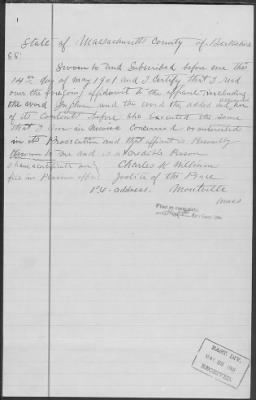 1
State of Massachusetts County of Berkshire
SS.
Sworn to and Subscribed before me this
14th day of May 1901 and I Certify that I read
over the foregoing affidavit to the affiant, including
the word and the word added and
of its Contents before she executed the same
that I am in nowise concerned or interested
in its Prosecution and that affiant is Personally
Known to me and is a Credible Person
Charles H. William
file in Pension office
Justice of the Peace
P.O. address. Monteville
Mass
EAST. DIV.
MAY 22 1901
RECEIVED